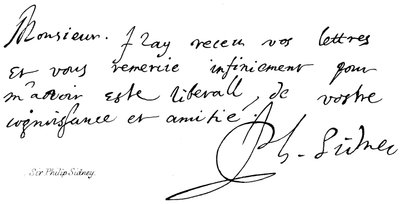 Monsieur. J'ay receu vos lettres
Et vous remercie infiniement pour
m'avoir esté liberall, de vostre
cognoissance et amitié.
Ph. Sidney
Sir Philip Sidney.